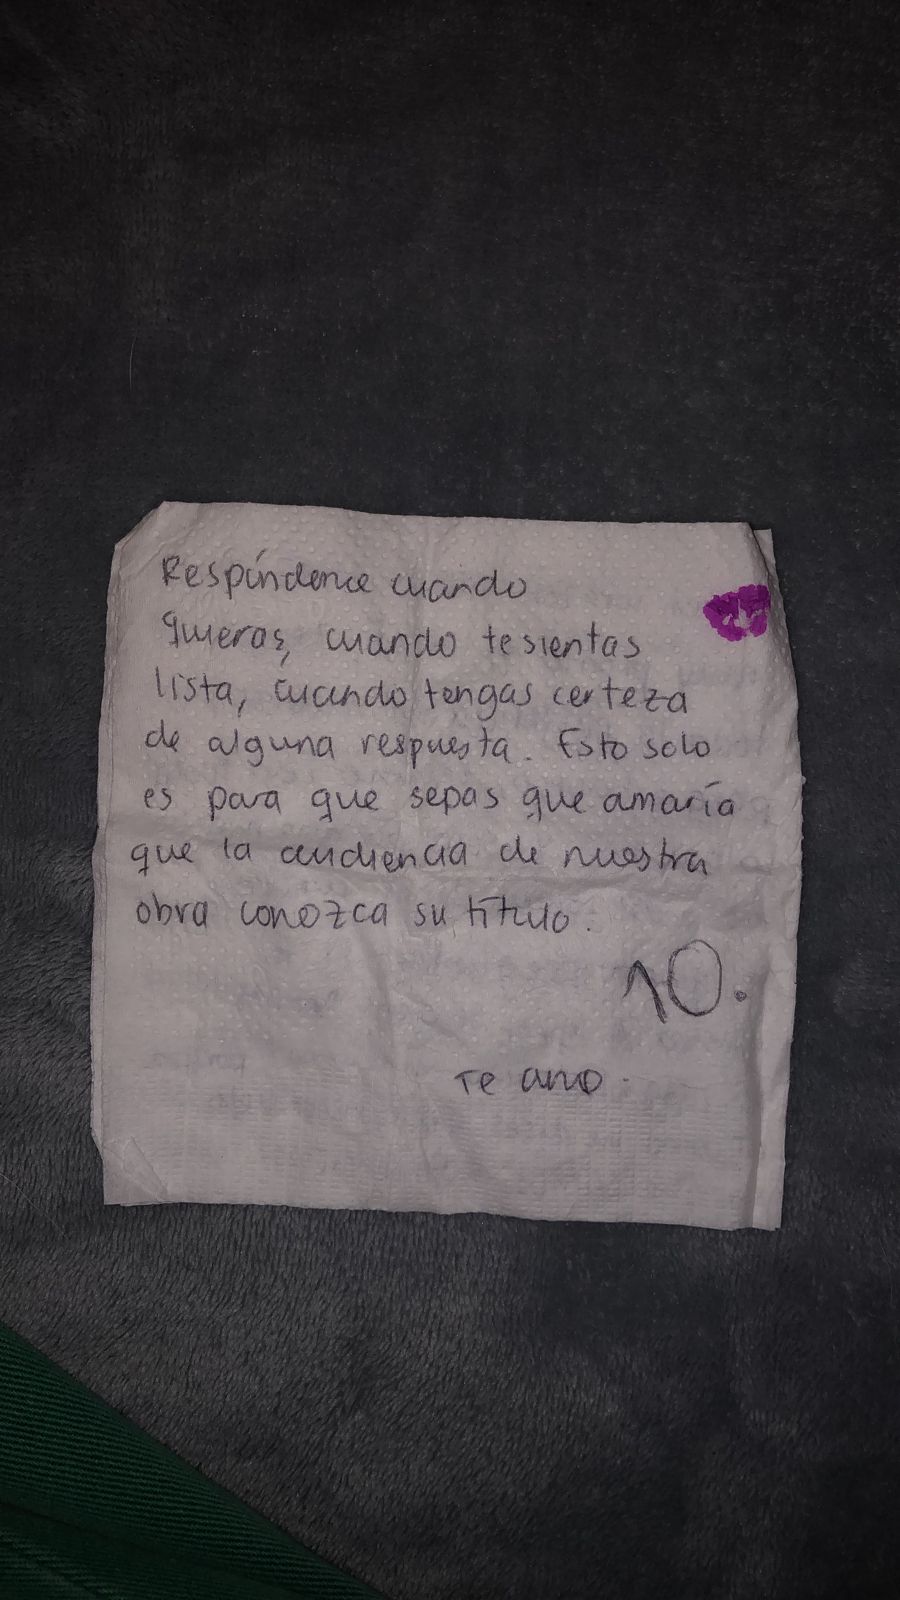 Respóndeme cuando
quieras, cuando te sientas
lista, cuando tengas certeza
de alguna respuesta. Esto solo
es para que sepas que amaría
que la audiencia de nuestra
obra conozca su título.
10.
Te amo.